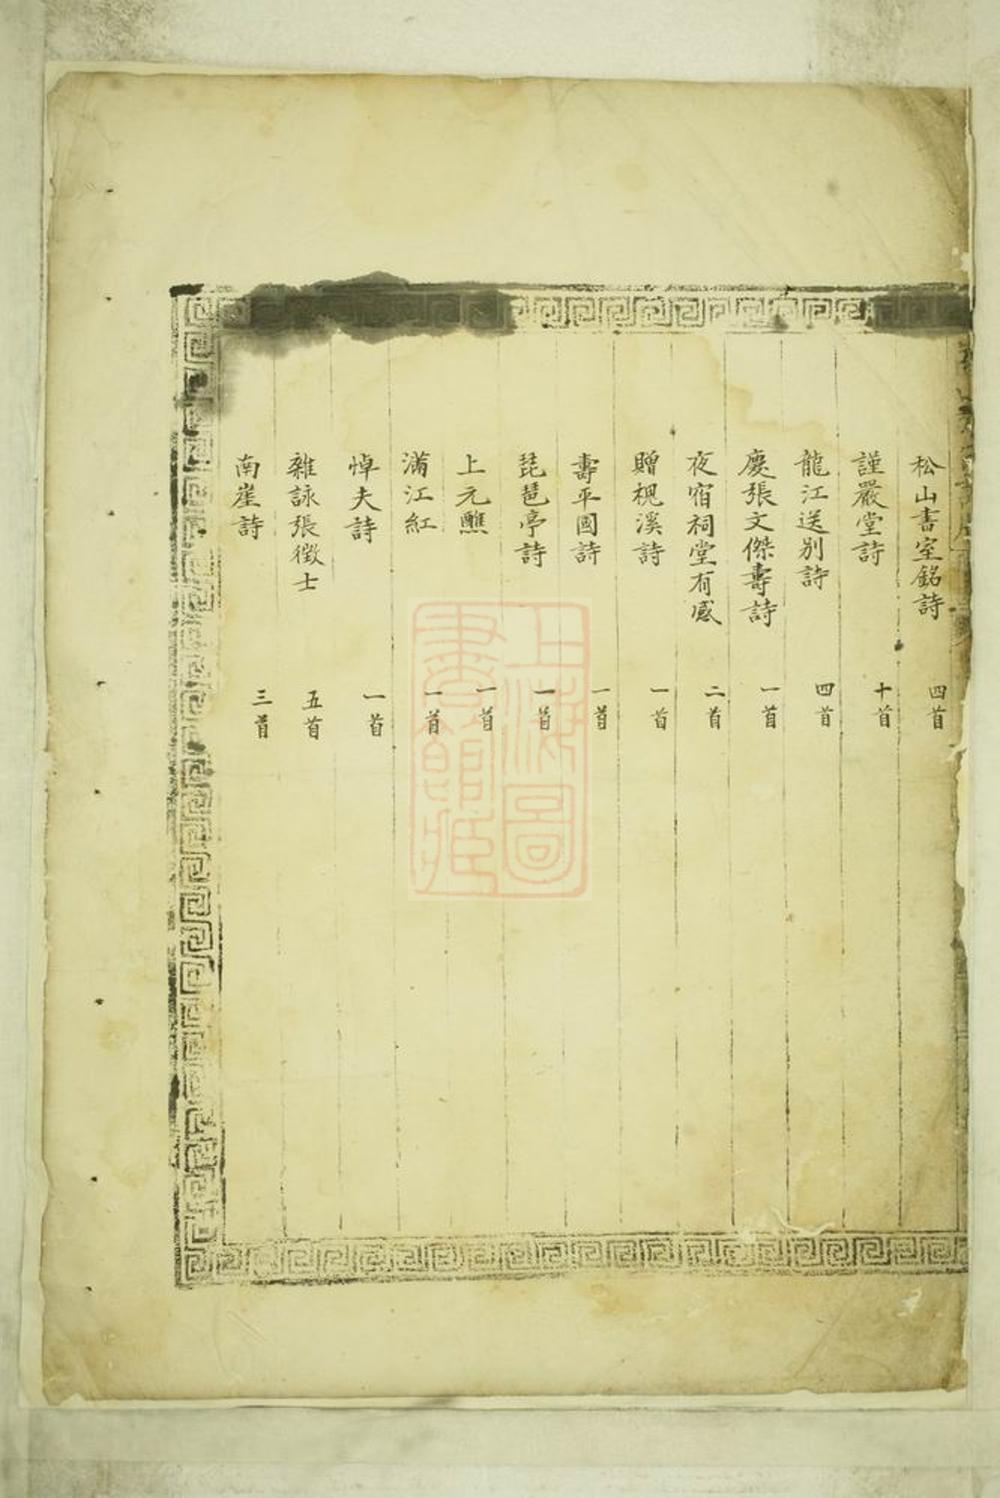 松山書室銘詩 四首
謹嚴堂詩 十首
龍江送別詩 四首
慶張文傑壽詩 一首
夜宿祠堂有感 二首
贈槐溪詩 一首
壽平國詩 一首
琵琶亭詩 一首
上元醮 一首
滿江紅 一首
悼夫詩 一首
雜詠張徵士 五首
南崖詩 三首
上海圖書館藏